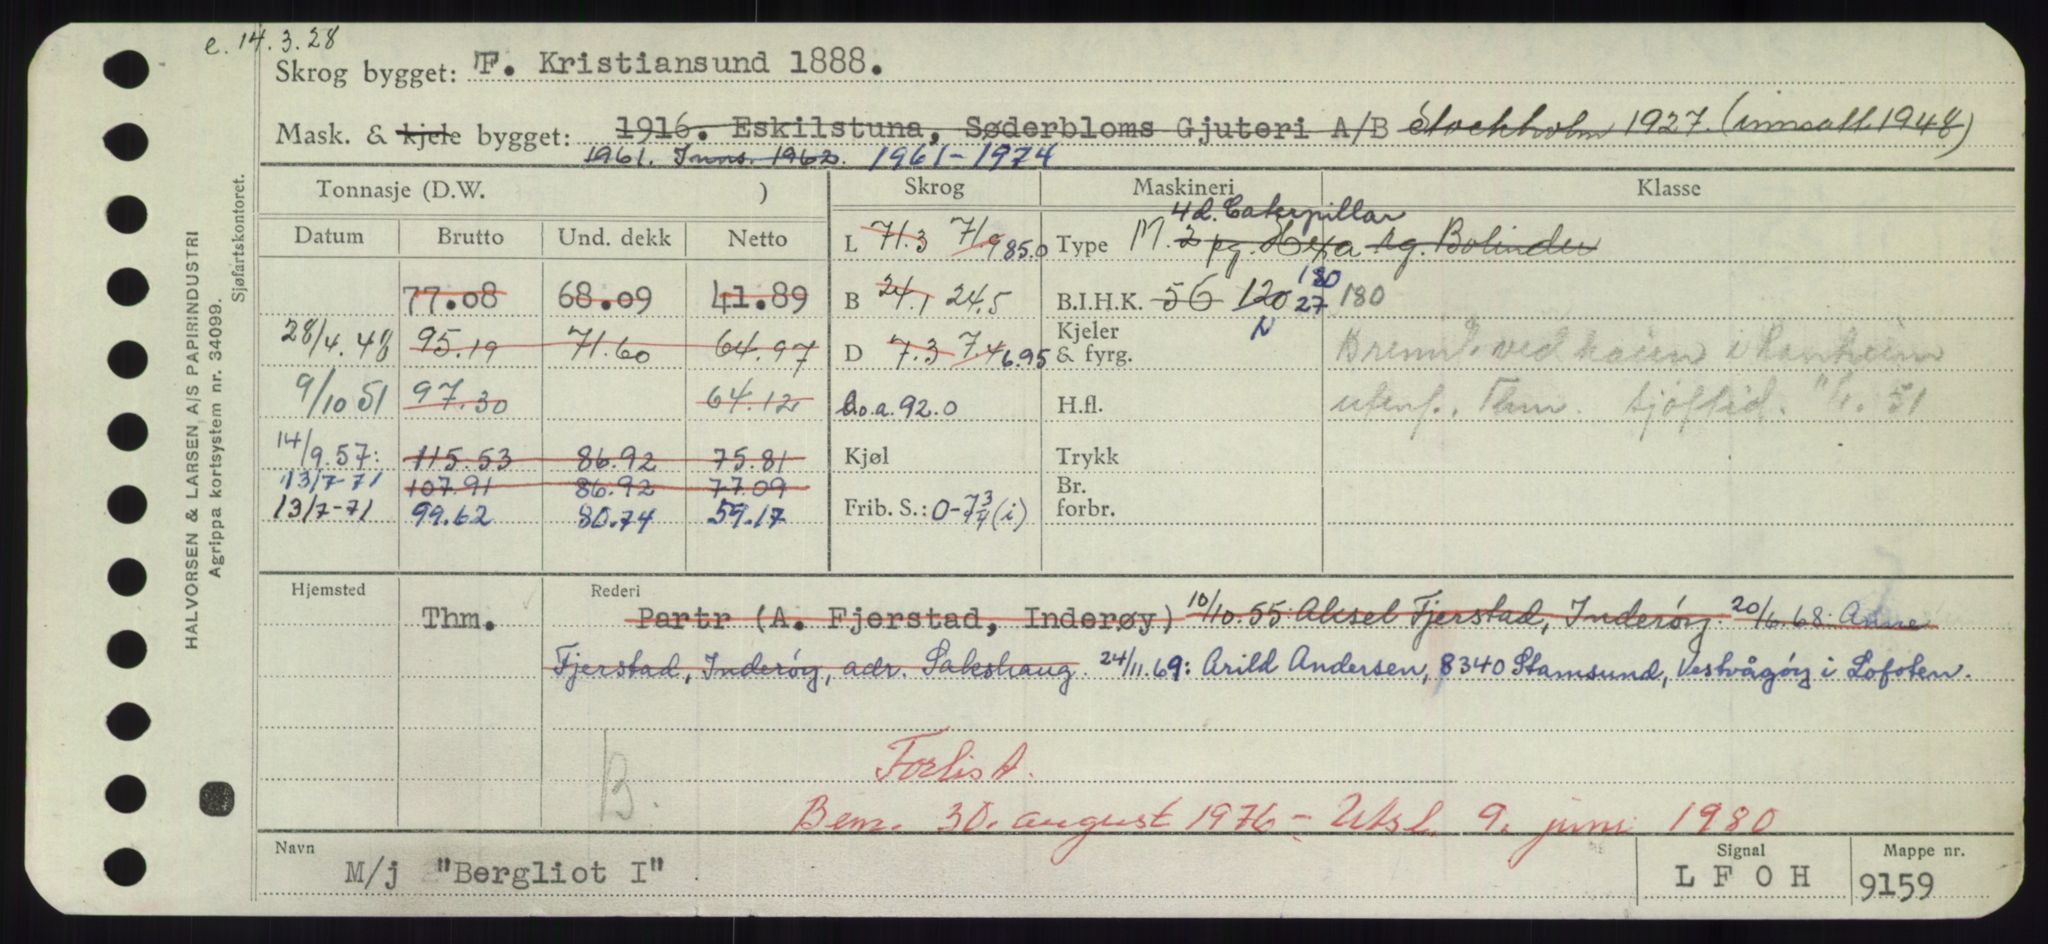 e. 14.3.28
Skrog bygget: F. Kristiansund 1888.
Mask. & kjele bygget: 1916. Eskilstuna, Søderbloms Gjuteri A/B Stockholm 1927. (innsatt 1948)
1961. Inns. 1962. 1961-1974
Tonnasje (D.W. ) Skrog Maskineri Klasse
Datum Brutto Und. dekk Netto
L 71.3 71.9 85.0 Type M. 2 pg. Hexa Ag. Bolinder
4d. Caterpillar
77.08 68.09 41.89 B 24.1 24.5 B.I.H.K. 56 120 180 27 180
N
28/4.48 95.19 71.60 64.97 D 7.3 7.4 6.95 Kjeler & fyrg.
Brennt ved kaien i Ranheim
9/10 51 97.30 64.12 l.o.a. 92.0 H.fl.
utenf. Thm. Sjøftid. 51
14/9.57: 115.53 86.92 75.81 Kjøl Trykk
13/7-71 107.91 86.92 77.09 Br. forbr.
13/7-71 99.62 80.74 59.17 Frib. S.: 0-7 3/4 (i)
Hjemsted Rederi
Thm. Partr (A. Fjerstad, Inderøy) 10/10.55: Aksel Fjerstad, Inderöy. 20/6.68: Anne
Fjerstad, Inderöy, adr. Sakshaug. 24/11.69: Arild Andersen, 8340 Stamsund, Vestvågöy i Lofoten.
Forlist.
B.
Bem. 30. august 1976 - Utsl. 9. juni 1980
Navn M/j "Bergliot I" Signal L F O H Mappe nr. 9159
HALVORSEN & LARSEN A/S PAPIRINDUSTRI
Agrippa kortsystem nr. 34099.
Sjøfartskontoret.